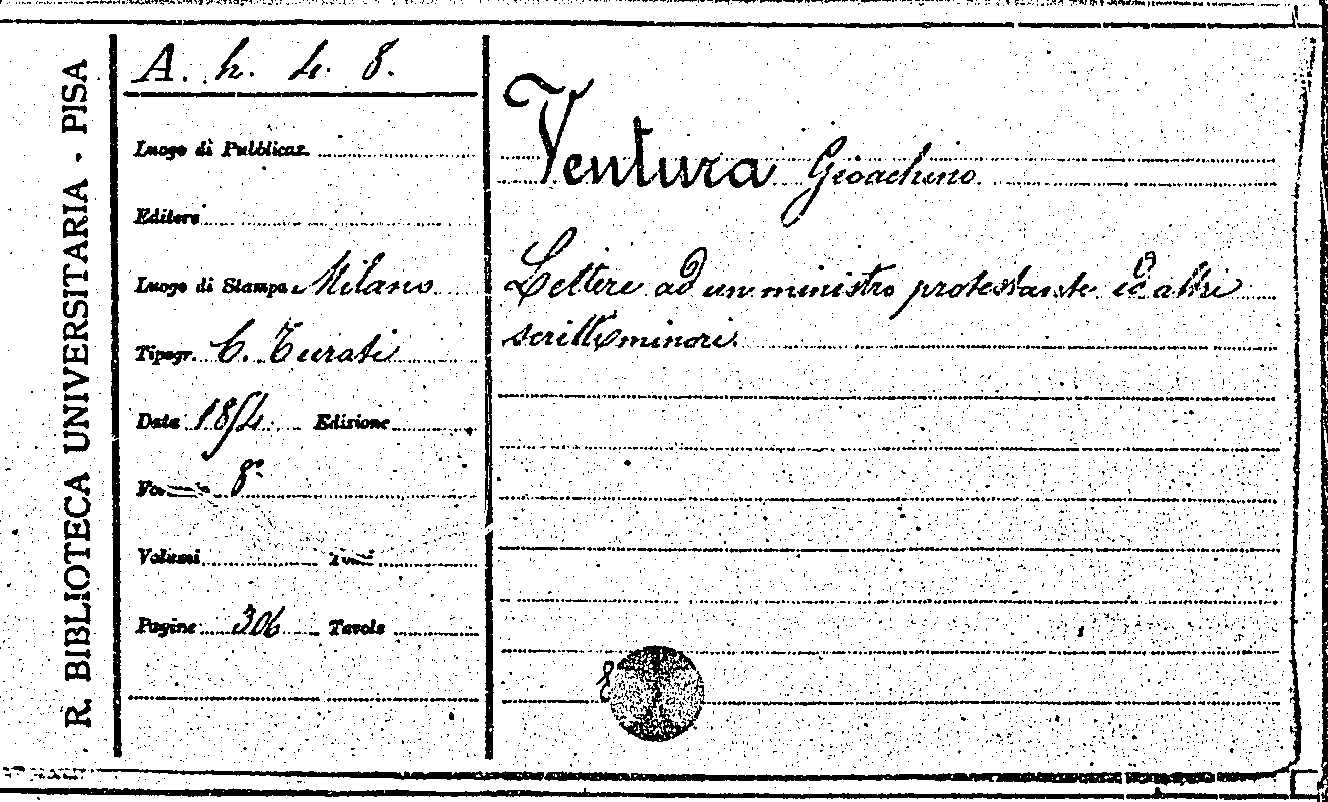 R. BIBLIOTECA UNIVERSITARIA - PISA
A. h. 4. 8.
Luogo di Pubblicaz.
Editore
Luogo di Stampa Milano
Tipogr. C. Turati
Data 1854 Edizione
8°
Volumi Tomi
Pagine 306 Tavole
Ventura Gioachino
Lettere ad un ministro protestante ed altri
scritti minori.
8